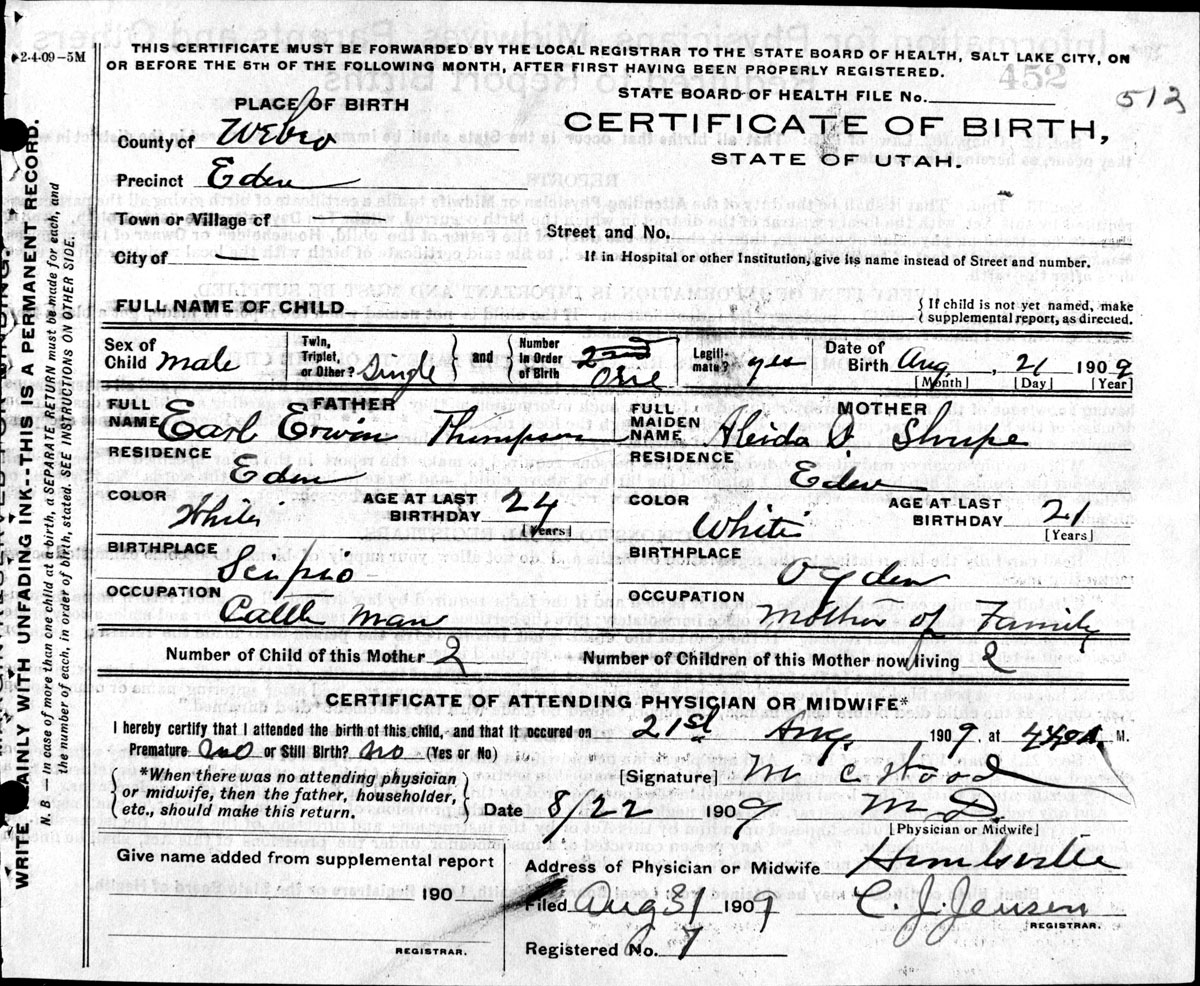 2-4-09-5M
THIS CERTIFICATE MUST BE FORWARDED BY THE LOCAL REGISTRAR TO THE STATE BOARD OF HEALTH, SALT LAKE CITY, ON
OR BEFORE THE 5TH OF THE FOLLOWING MONTH, AFTER FIRST HAVING BEEN PROPERLY REGISTERED.
452
512
STATE BOARD OF HEALTH FILE No.
PLACE OF BIRTH
CERTIFICATE OF BIRTH,
STATE OF UTAH.
County of
Precinct Eden
Town or Village of —
Street and No.
City of —
If in Hospital or other Institution, give its name instead of Street and number.
FULL NAME OF CHILD
{ If child is not yet named, make
supplemental report, as directed.
Sex of Child male
Twin, Triplet, or Other? Single } and { Number in Order of Birth 2nd One
Legitimate? yes
Date of Birth Aug, 21 1909
[Month] [Day] [Year]
FATHER
FULL NAME Earl Erwin Thompson
RESIDENCE Eden
COLOR White
AGE AT LAST BIRTHDAY 24
[Years]
BIRTHPLACE Scipio
OCCUPATION Cattle man
MOTHER
FULL MAIDEN NAME Aleida S. Shupe
RESIDENCE Eden
COLOR White
AGE AT LAST BIRTHDAY 21
[Years]
BIRTHPLACE Ogden
OCCUPATION Mother of Family
Number of Child of this Mother 2 Number of Children of this Mother now living 2
CERTIFICATE OF ATTENDING PHYSICIAN OR MIDWIFE*
I hereby certify that I attended the birth of this child, and that it occured on 21st Aug, 1909, at M.
Premature no or Still Birth? no (Yes or No)
*When there was no attending physician
or midwife, then the father, householder,
etc., should make this return.
[Signature] M. C. Wood
Date 8/22 1909 M D
[Physician or Midwife]
Give name added from supplemental report
190
REGISTRAR.
Address of Physician or Midwife Huntsville
Filed Aug 31 1909 C. J. Jensen
REGISTRAR.
Registered No. 7
WRITE PLAINLY WITH UNFADING INK--THIS IS A PERMANENT RECORD.
N. B.—In case of more then one child at a birth, a SEPARATE RETURN must be made for each, and
the number of each, in order of birth, stated. SEE INSTRUCTIONS ON OTHER SIDE.